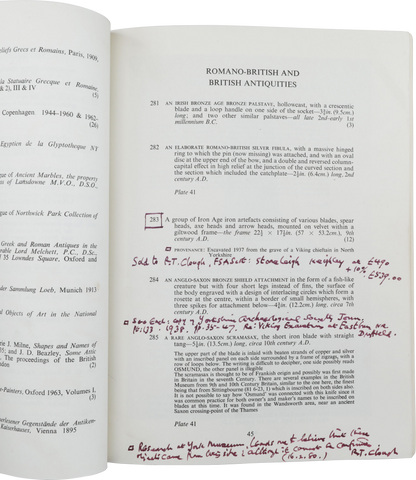 eliefs Grecs et Romains, Paris, 1908,
la Statuaire Grecque et Romaine,
& 2), III & IV
(5)
Copenhagen 1944-1960 & 1962-
(26)
Egyptien de la Glyptotheque NY
gue of Ancient Marbles, the property
uis of Lansdowne M.V.O., D.S.O.,
gue of Northwick Park Collection of
Greek and Roman Antiques in the
rable Lord Melchett, P.C., DSc.
35 Lowndes Square, Oxford and
der Sammlung Loeb, Munich 1913
d Objects of Art in the National
dric J. Milne, Shapes and Names of
and J. D. Beazley, Some Attic
The proceedings of the British
(2)
-Painters, Oxford 1963, Volumes I,
(3)
arlesener Gegenstände der Antiken-
Kaiserhauser, Vienna 1895
ROMANO-BRITISH AND
BRITISH ANTIQUITIES
281 AN IRISH BRONZE AGE BRONZE PALSTAVE, hollowcast, with a crescentic
blade and a loop handle on one side of the socket—3¾in. (9.5cm.)
long; and two other similar palstaves—all late 2nd-early 1st
millennium B.C. (3)
282 AN ELABORATE ROMANO-BRITISH SILVER FIBULA, with a massive hinged
ring to which the pin (now missing) was attached, and with an oval
disc at the upper end of the bow, and a double and reversed column-
capital effect in high relief at the junction of the curved section and
the section which included the catchplate—2½in. (6.4cm.) long, 2nd
century A.D.
Plate 41
283 A group of Iron Age iron artefacts consisting of various blades, spear
heads, axe heads and arrow heads, mounted on velvet within a
giltwood frame—the frame 22½ × 17½in. (57 × 53.2cm.), 9th
century A.D. (12)
PROVENANCE: Excavated 1937 from the grave of a Viking chieftain in North
Yorkshire
Sold to R.T. Clough, F.S.A. Scot: Stoneleigh Keighley
+10%
284 AN ANGLO-SAXON BRONZE SHIELD ATTACHMENT in the form of a fish-like
creature but with four short legs instead of fins, the surface of
the body engraved with a design of interlacing circles which forms a
rosette at the centre, within a border of small hemispheres, with
three spikes for attachment below—4¾in. (12.2cm.) long, circa 7th
century A.D.
285 A RARE ANGLO-SAXON SCRAMASAX, the short iron blade with straight
tang—5¼in. (13.5cm.) long, circa 10th century A.D.
The upper part of the blade is inlaid with beaten strands of copper and silver
with an inscribed panel on each side surrounded by a frame of zigzag, with a
row of loops below. The writing is difficult to decipher, one side possibly reads
OSMUND, the other panel is illegible
The scramasax is thought to be of Frankish origin and possibly was first made
in Britain in the seventh Century. There are several examples in the British
Museum from 9th and 10th Century Britain, similar to the one here, the finest
being that from Sittingbourne (81 6-23, 1) which is inscribed on both sides also.
It is not possible to say how 'Osmund' was connected with this knife since it
was common practice for both owner's and maker's names to be inscribed on
blades at this time. It was found in the Wandsworth area, near an ancient
Saxon crossing-point of the Thames
Plate 41
45
Research at York Museum, leads me to believe that these
objects came from this site; although it cannot be confirmed
(16.2.80.) R.T. Clough